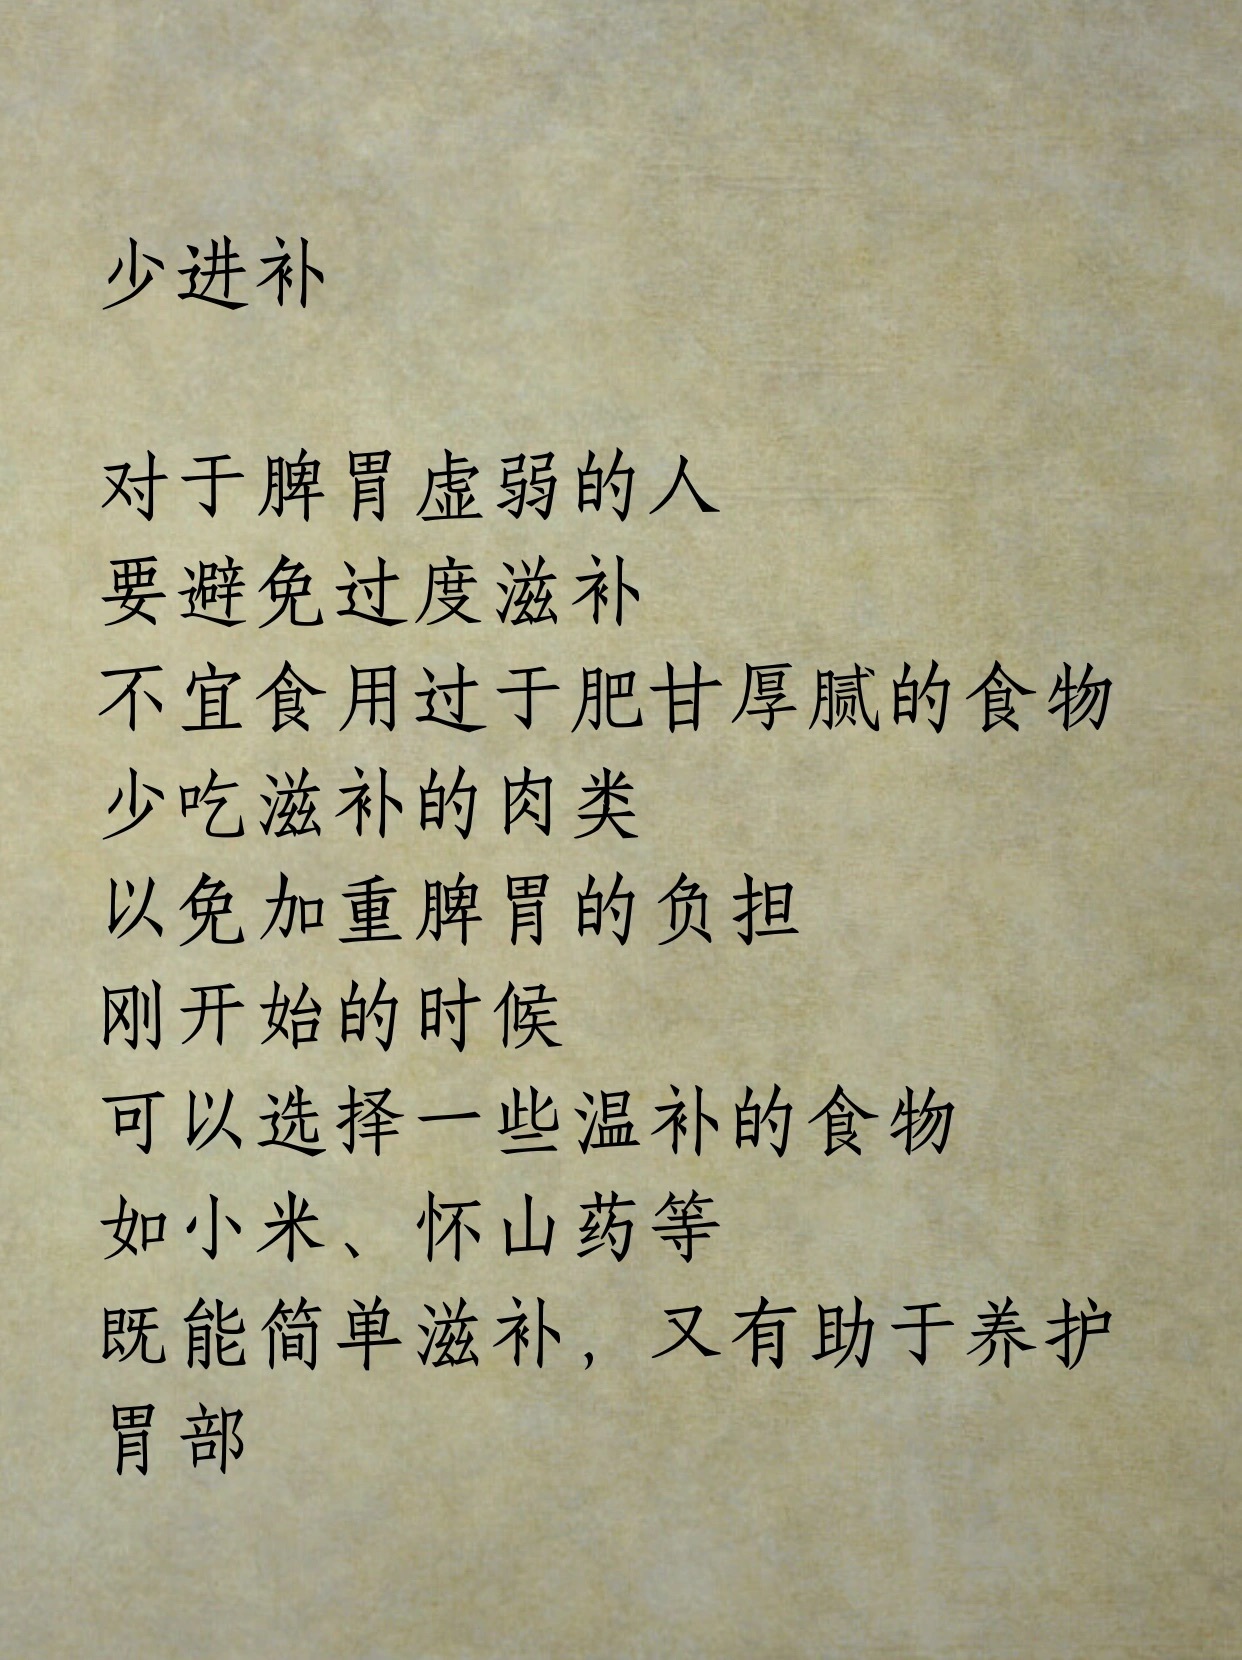 少进补
对于脾胃虚弱的人
要避免过度滋补
不宜食用过于肥甘厚腻的食物
少吃滋补的肉类
以免加重脾胃的负担
刚开始的时候
可以选择一些温补的食物
如小米、怀山药等
既能简单滋补，又有助于养护
胃部